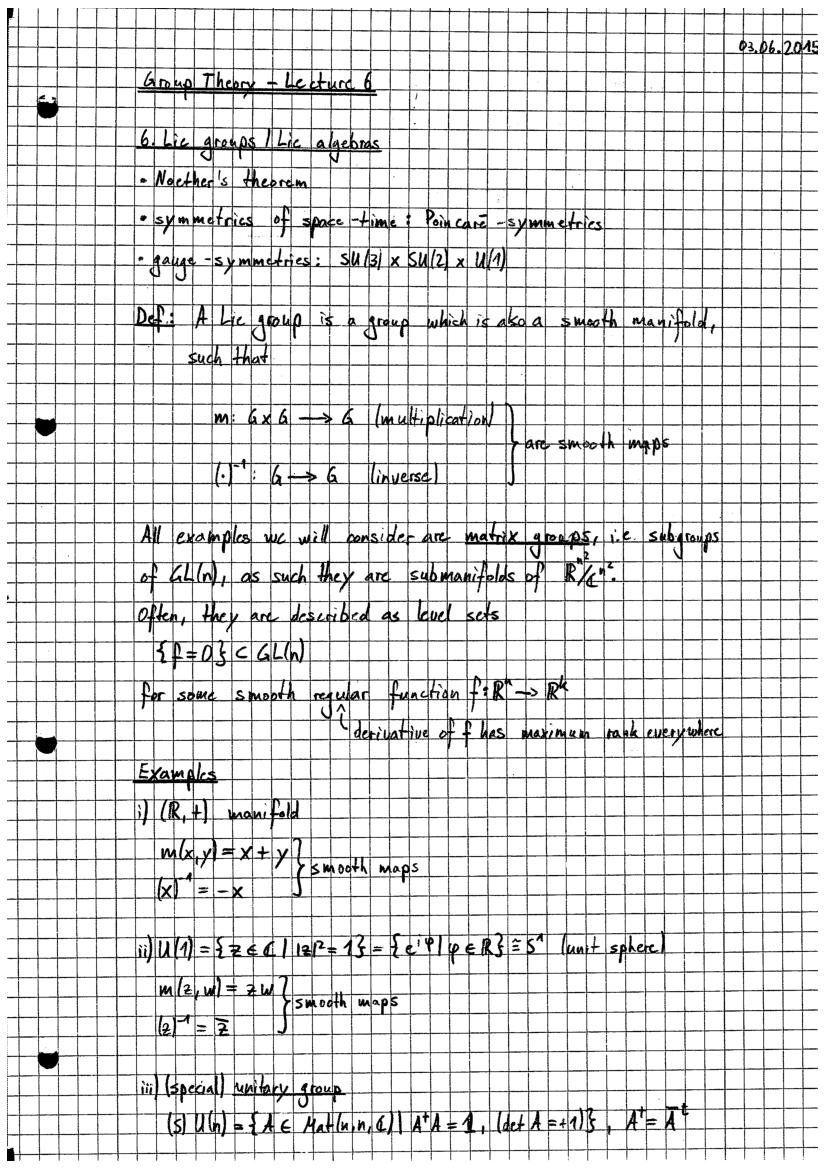 03.06.2015
Group Theory - Lecture 6
6. Lie groups / Lie algebras
• Noether's theorem
• symmetries of space-time: Poincaré-symmetries
• gauge-symmetries: SU(3) × SU(2) × U(1)
Def.: A Lie group is a group which is also a smooth manifold,
such that
m: G × G → G (multiplication)
are smooth maps
(·)⁻¹: G → G (inverse)
All examples we will consider are matrix groups, i.e. subgroups
of GL(n), as such they are submanifolds of ℝⁿ²/ℂⁿ².
Often, they are described as level sets
{f=0} ⊂ GL(n)
for some smooth regular function f: ℝⁿ → ℝᵏ
derivative of f has maximum rank everywhere
Examples
i) (ℝ, +) manifold
m(x,y) = x + y
smooth maps
(x)⁻¹ = -x
ii) U(1) = {z ∈ ℂ | |z|² = 1} = {e^{iφ} | φ ∈ ℝ} ≅ S¹ (unit sphere)
m(z,w) = zw
smooth maps
(z)⁻¹ = z̄
iii) (special) unitary group
(S)U(n) = {A ∈ Mat(n,n,ℂ) | A⁺A = 𝟙, (det A = +1)}, A⁺ = Āᵗ